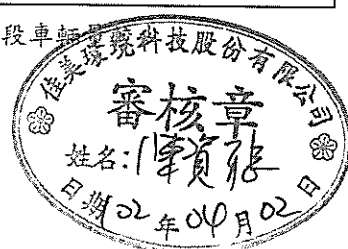 段車輛
佳美環境科技股份有限公司
審核章
姓名:陳
日期02年04月02日